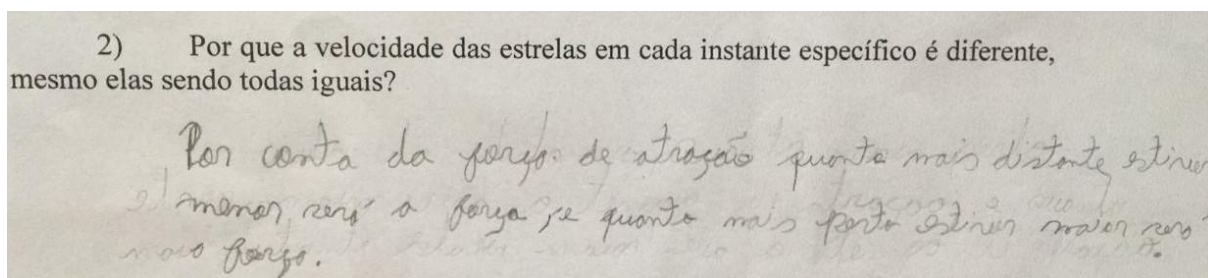 2) Por que a velocidade das estrelas em cada instante específico é diferente,
mesmo elas sendo todas iguais?
Por conta da força de atração quanto mais distante estiver
menor será a força, e quanto mais perto estiver maior será
força.